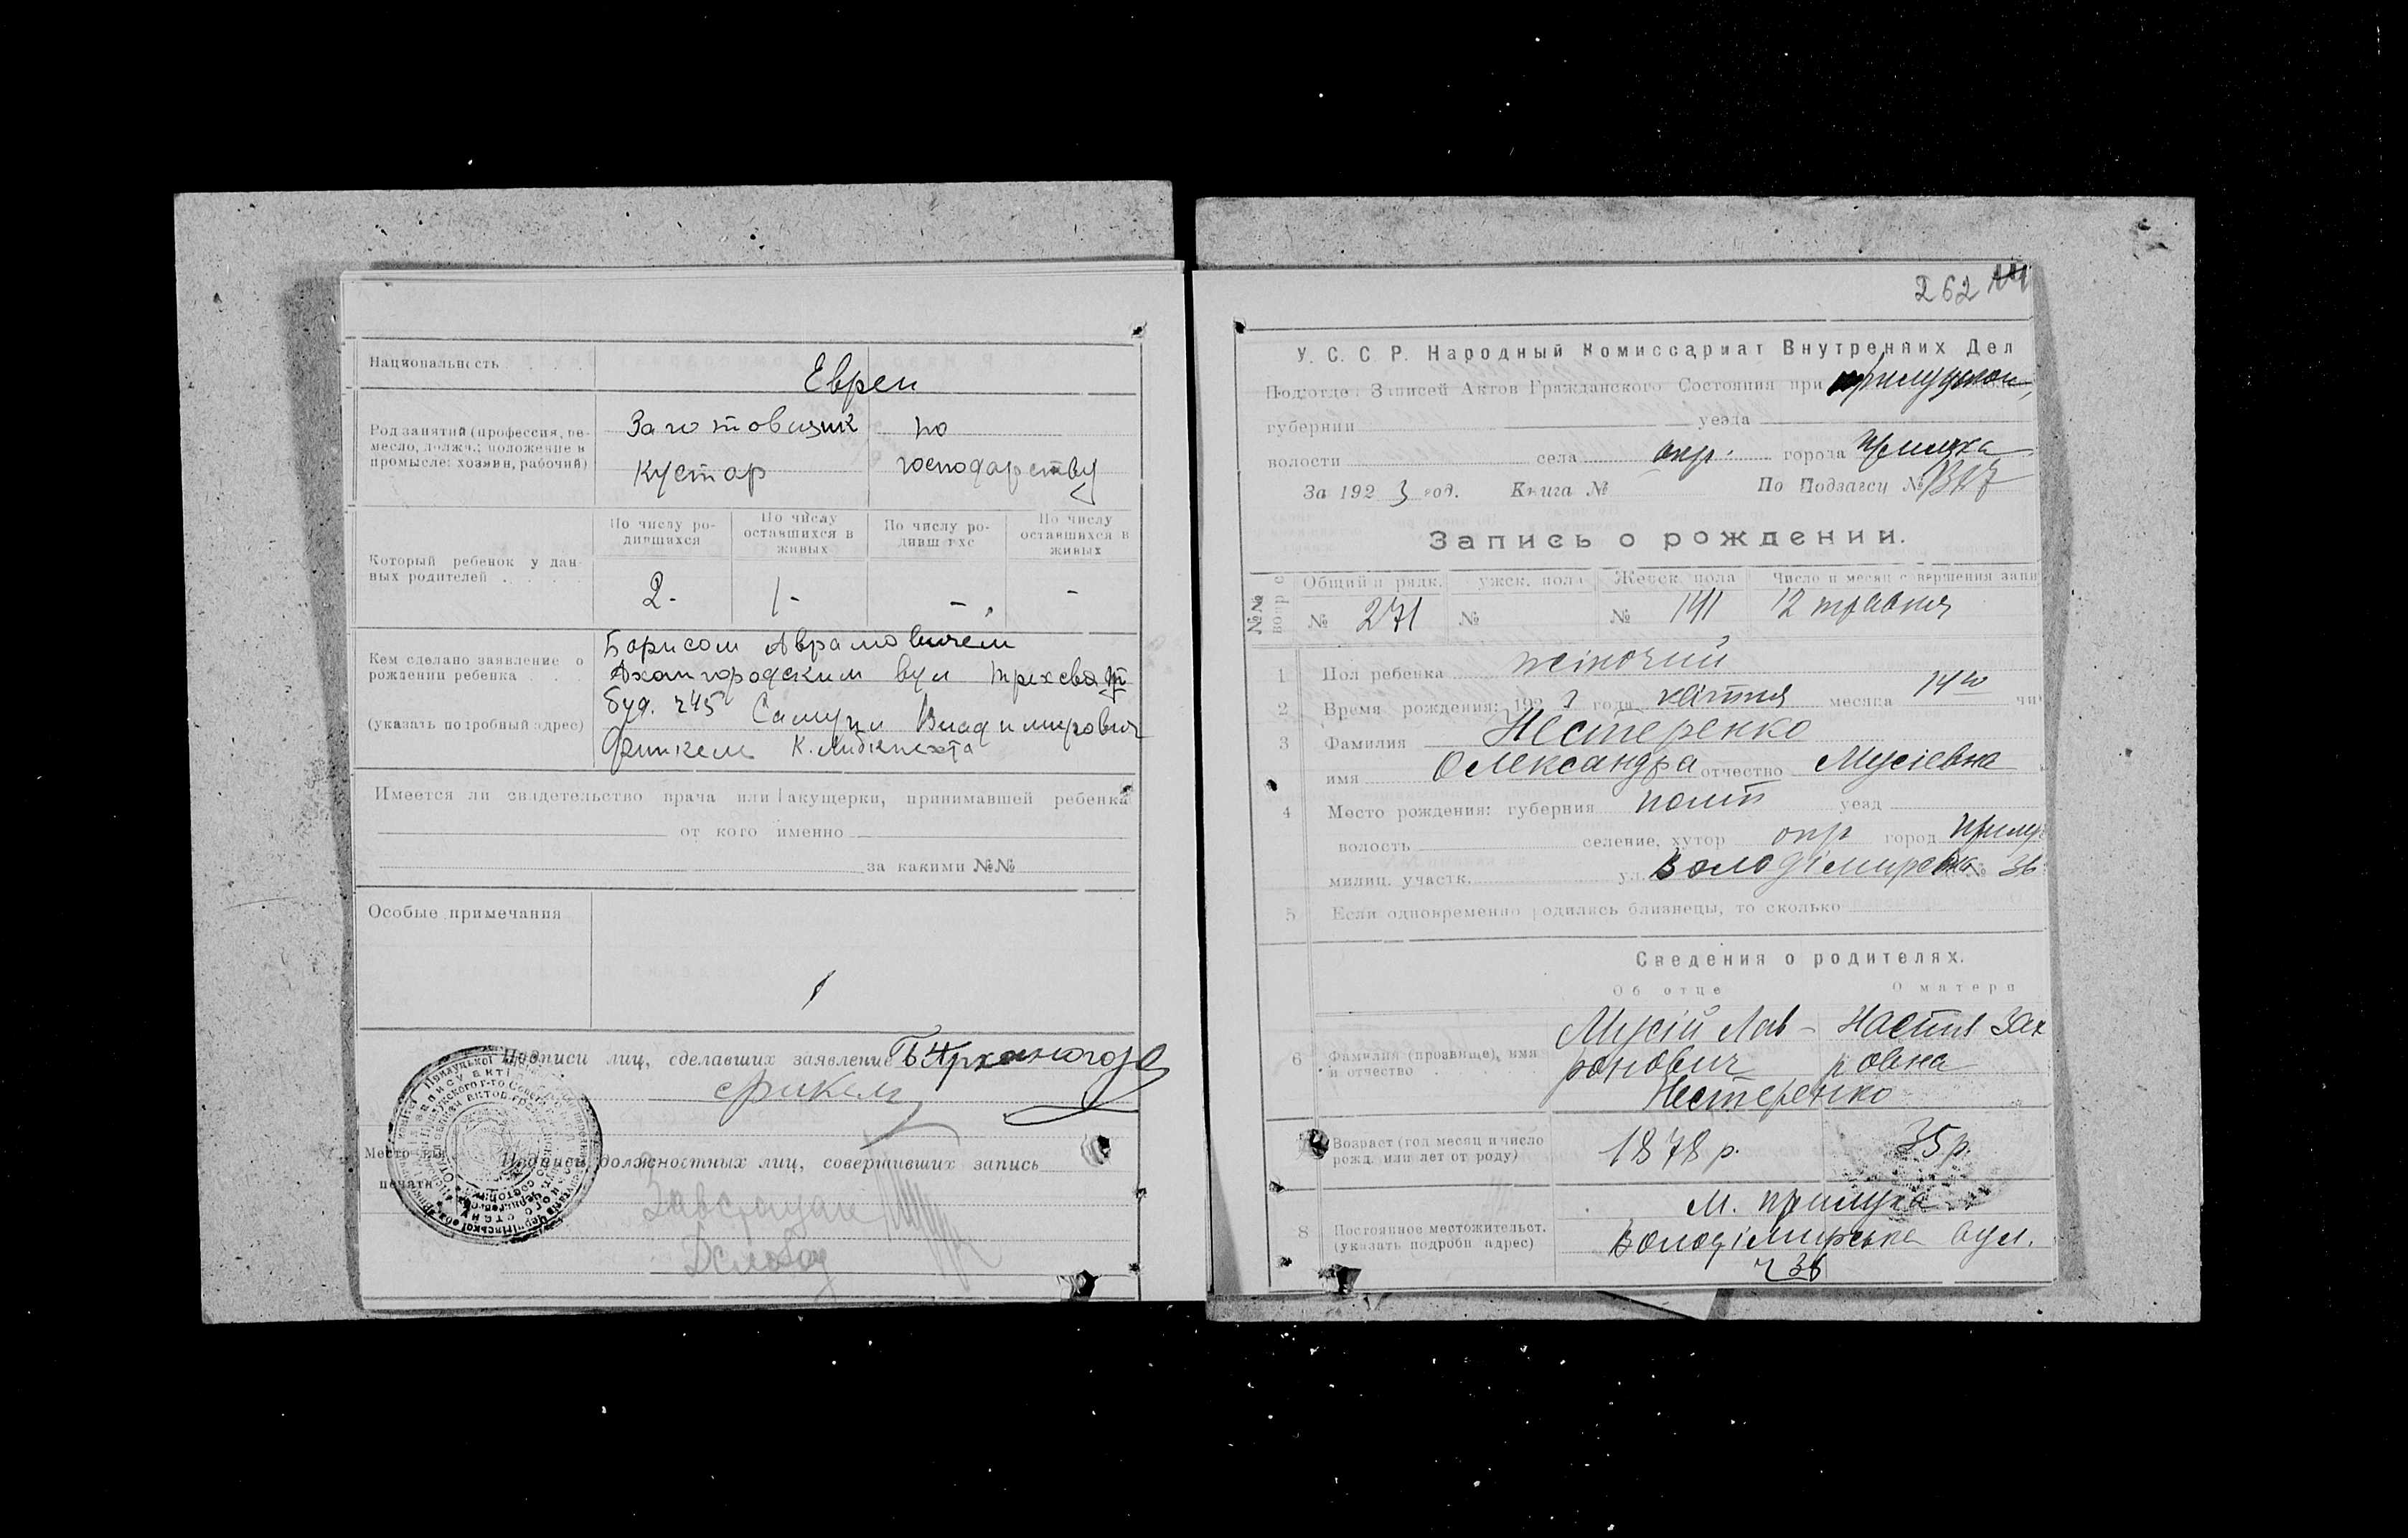 Национальность
Евреи
Род занятий (профессия, ре-
месло, должн.; положение в
промысле: хозяин, рабочий)
Заготовщик
кустар
по
господарству
Который ребенок у дан-
ных родителей
По числу ро-
дившихся
По числу
оставшихся в
живых
По числу ро-
дивш хс
По числу
оставшихся в
живых
2-
1-
-
-
Кем сделано заявление о
рождении ребенка
(указать подробный адрес)
Борисом Аврамовичем
вул Трехсвят
буд. ч45 Самуил Владимирович
Финкель К. Либкнехта
Имеется ли свидетельство врача или акушерки, принимавшей ребенка
от кого именно
за какими №№
Особые примечания
Подписи лиц, сделавших заявление
Место для
печати
Подписи должностных лиц, совершивших запись
262
У. С. С. Р. Народный Комиссариат Внутренних Дел
Подотдел Записей Актов Гражданского Состояния при
губернии уезда
волости села окр. города Прилука
За 1923 год. Книга № По Подзагсу №
Запись о рождении.
№№ вопрос
Общий п рядк. ужск. пола Женск. пола Число и месяц с вершения запи
№ 271 № № 191 12 травня
1 Пол ребенка жіночий
2 Время рождения: 1923 года квітня месяца 14го чи
3 Фамилия Нестеренко
имя Олександра отчество Мусіевна
4 Место рождения: губерния Полт уезд
волость селение, хутор окр город Прилу
милиц. участк. ул. Володімирська № 36
5 Если одновременно родились близнецы, то сколько
Сведения о родителях.
Об отце О матери
6 Фамилия (прозвище), имя
и отчество
Мусій Лав-
ронович
Настя Зах
ровна
Нестеренко
Возраст (год месяц и число
рожд. или лет от роду)
1878 р. 35 р.
8 Постоянное местожительст.
(указать подробн адрес)
М. Прилука
Володімирська вул.
ч 36